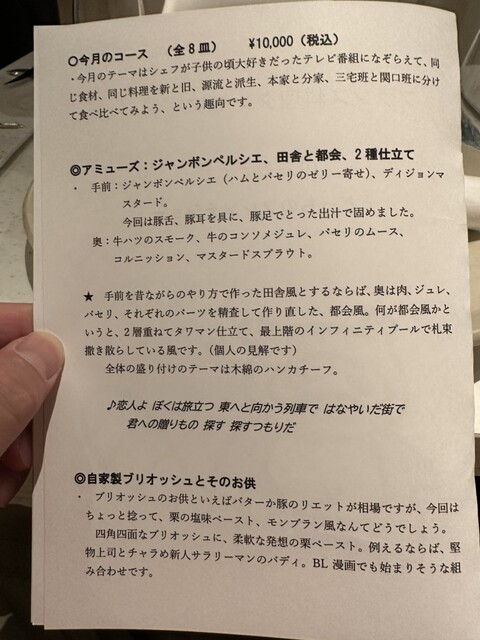 ○今月のコース　（全８皿）　　¥10,000（税込）
・今月のテーマはシェフが子供の頃大好きだったテレビ番組になぞらえて、同
じ食材、同じ料理を新と旧、源流と派生、本家と分家、三宅班と関口班に分け
て食べ比べてみよう、という趣向です。
◎アミューズ：ジャンボンペルシエ、田舎と都会、２種仕立て
・　手前：ジャンボンペルシエ（ハムとパセリのゼリー寄せ）、ディジョンマ
スタード。
今回は豚舌、豚耳を具に、豚足でとった出汁で固めました。
奥：牛ハツのスモーク、牛のコンソメジュレ、パセリのムース、
コルニッション、マスタードスプラウト。
★　手前を昔ながらのやり方で作った田舎風とするならば、奥は肉、ジュレ、
パセリ、それぞれのパーツを精査して作り直した、都会風。何が都会風かと
いうと、２層重ねてタワマン仕立て、最上階のインフィニティプールで札束
撒き散らしている風です。（個人の見解です）
全体の盛り付けのテーマは木綿のハンカチーフ。
♪恋人よ　ぼくは旅立つ　東へと向かう列車で　はなやいだ街で
君への贈りもの　探す　探すつもりだ
◎自家製ブリオッシュとそのお供
・　ブリオッシュのお供といえばバターか豚のリエットが相場ですが、今回は
ちょっと捻って、栗の塩味ペースト、モンブラン風なんてどうでしょう。
四角四面なブリオッシュに、柔軟な発想の栗ペースト。例えるならば、堅
物上司とチャラめ新人サラリーマンのバディ。BL 漫画でも始まりそうな組
み合わせです。